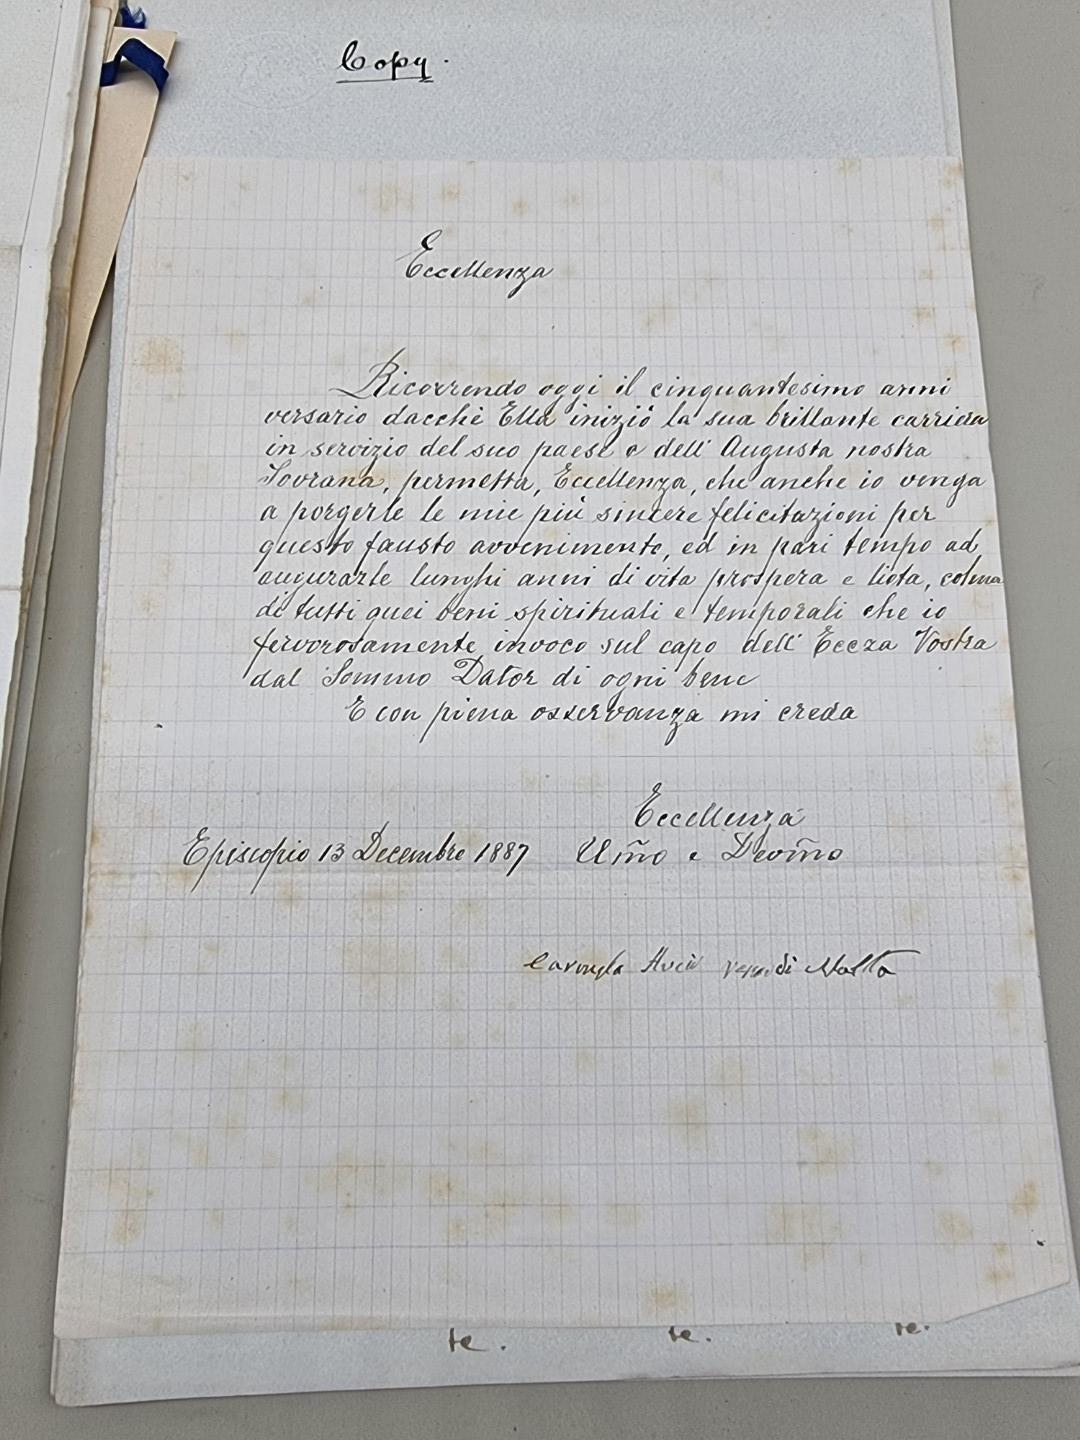 Copy.
Eccellenza
Ricorrendo oggi il cinquantesimo anni
versario dacchè Ella iniziò la sua brillante carriera
in servizio del suo paese e dell' Augusta nostra
Sovrana, permetta, Eccellenza, che anche io venga
a porgerle le mie più sincere felicitazioni per
questo fausto avvenimento, ed in pari tempo ad
augurarle lunghi anni di vita prospera e lieta, colma
di tutti quei beni spirituali e temporali che io
fervorosamente invoco sul capo dell' Eccza Vostra
dal Sommo Dator di ogni bene
E con piena osservanza mi creda
Eccellenza
Episcopio 13 Decembre 1887 Umo e Devmo
di Malta
te. te. te.